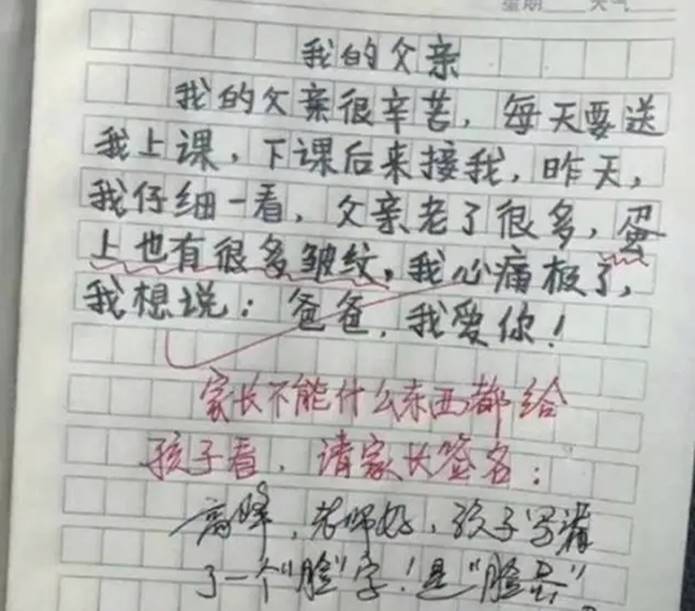 我的父亲
我的父亲很辛苦，每天要送
我上课，下课后来接我，昨天，
我仔细一看，父亲老了很多，蛋
上也有很多皱纹，我心痛极了，
我想说：爸爸，我爱你！
家长不能什么东西都给
孩子看，请家长签名：
高峰，老师好，孩子写漏
了一个"脸"字！是"脸蛋"